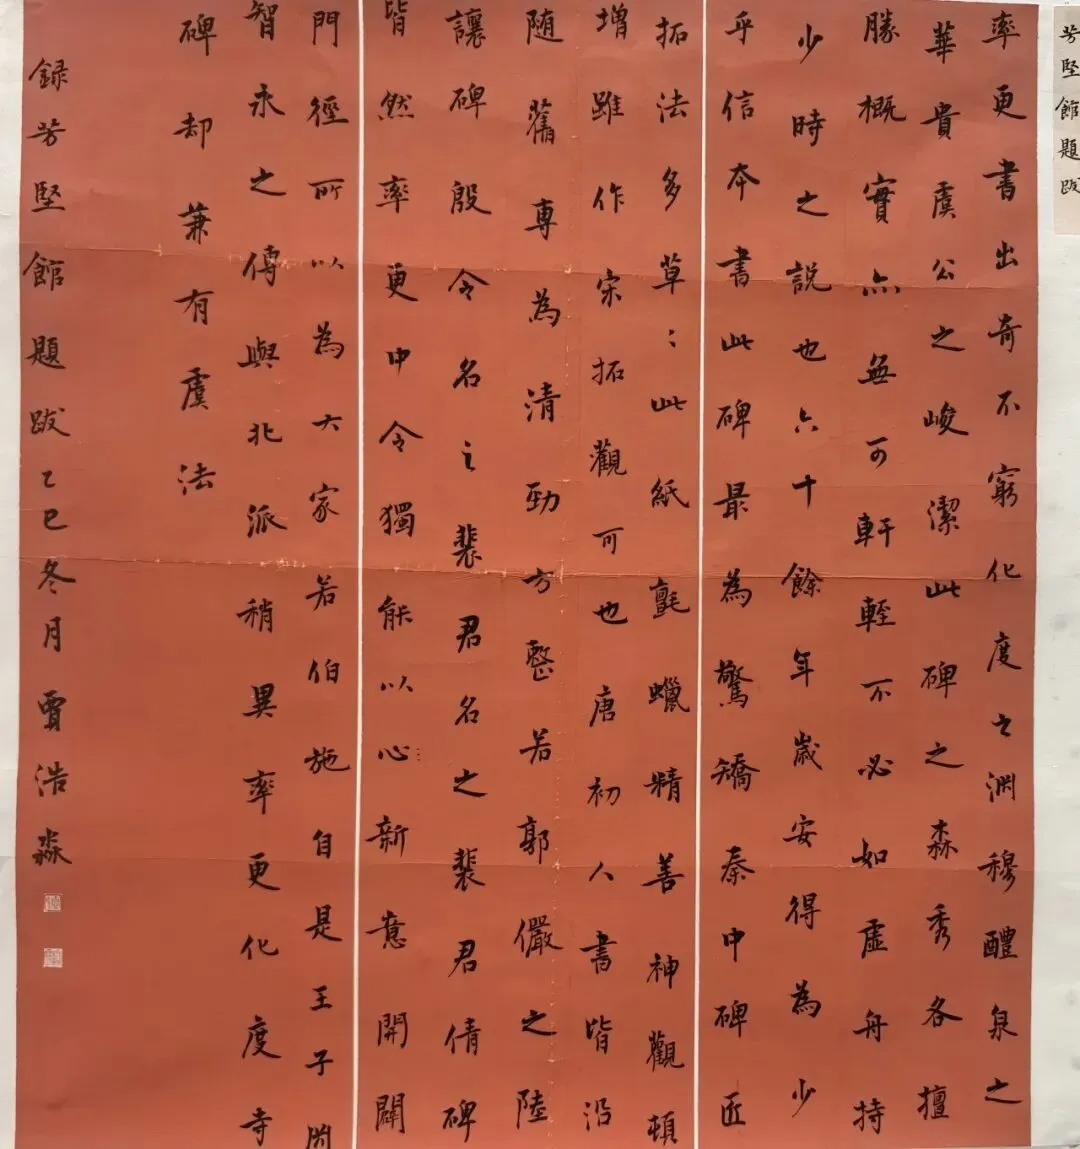 芳堅館題跋
率更書出奇不窮化度之渊穆醴泉之
華貴虞公之峻潔此碑之森秀各擅
勝概實亦無可軒輊不必如虛舟持
少時之說也六十餘年歲安得為少
乎信本書此碑最為驚矯秦中碑匠
拓法多草〻此紙氈蠟精善神觀頓
增雖作宋拓觀可也唐初人書皆沿
随舊專為清勁方整若郭儼之陸
讓碑殷令名之裴君名之裴君倩碑
皆然率更中令獨能以心新意開闢
門徑所以為大家若伯施自是王子
智永之傳與北派稍異率更化度寺
碑却兼有虞法
録芳堅館題跋乙巳冬月賈浩淼